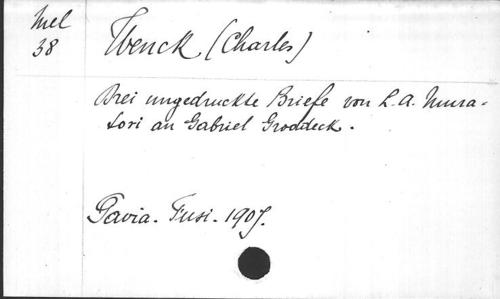 Mel
38
Wenck (Charles)
Drei ungedruckte Briefe von L. A. Mura-
tori an Gabriel Groddeck.
Pavia. Fusi. 1907.